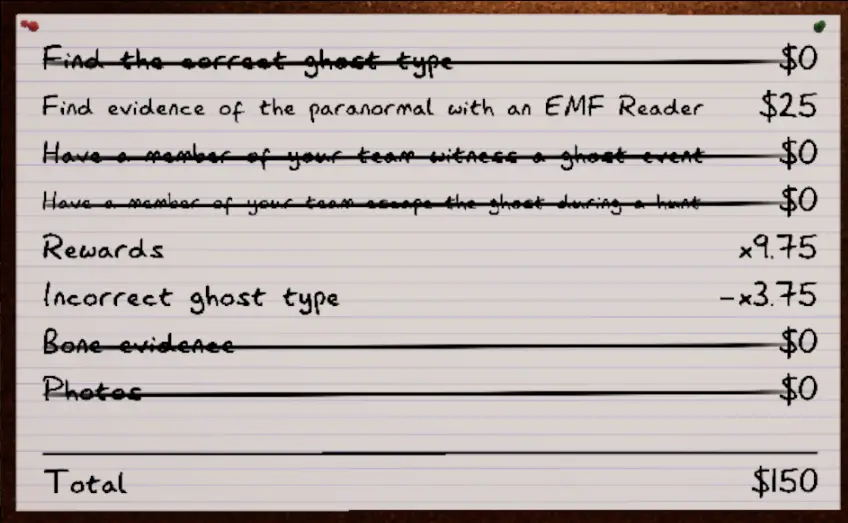 Find the correct ghost type $0
Find evidence of the paranormal with an EMF Reader $25
Have a member of your team witness a ghost event $0
Have a member of your team escape the ghost during a hunt $0
Rewards x9.75
Incorrect ghost type -x3.75
Bone evidence $0
Photos $0
Total $150